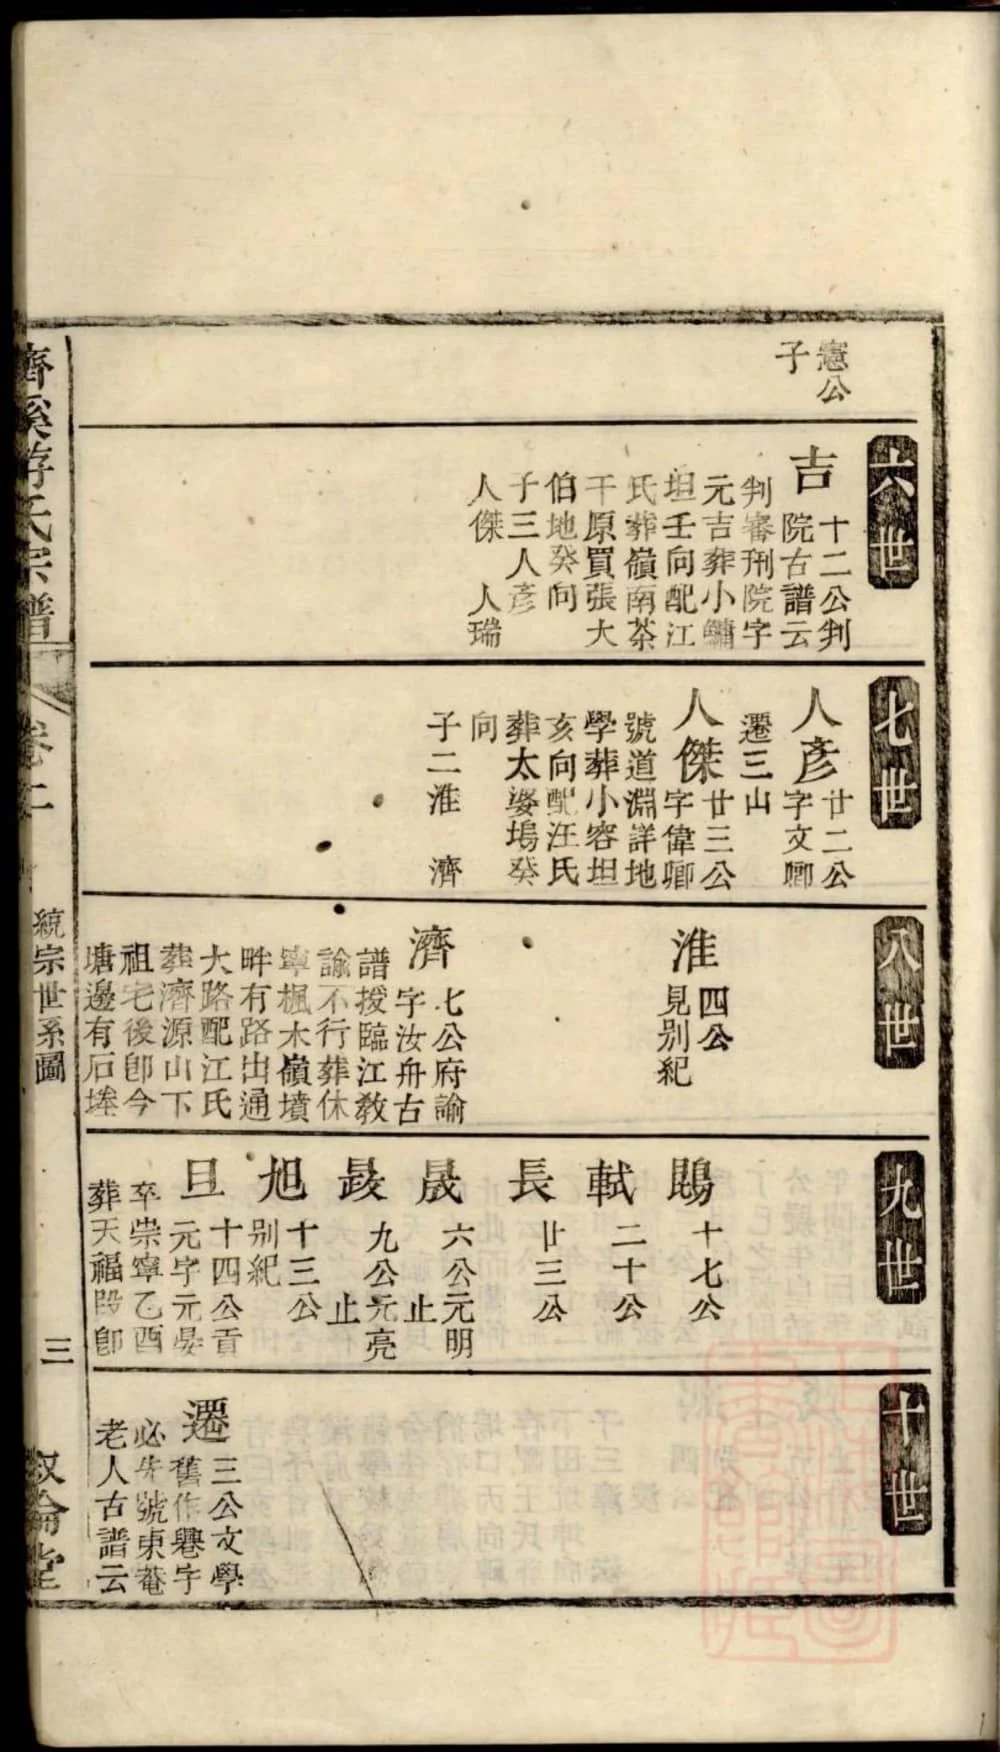 憲公
子
六世
吉
十二公判
院古譜云
判審刑院字
元吉葬小鏞
坦壬向配江
氏葬嶺南茶
干原買張大
伯地癸向
子三人彥
人傑 人瑞
七世
人彥
廿二公
字文卿
遷三山
人傑
廿三公
字偉卿
號道淵詳地
學葬小容坦
亥向配汪氏
葬太婆塢癸
向
子二淮 濟
八世
淮
四公
見別紀
濟
七公府諭
字汝舟古
譜援臨江敎
諭不行葬休
寧楓木嶺墳
畔有路出通
大路配江氏
葬濟源山下
祖宅後卽今
塘邊有石塟
九世
鶗 十七公
軾 二十公
長 廿三公
晟
六公元明
止
晸
九公元亮
止
旭
十三公
別紀
旦
十四公貢
元字元晏
卒崇寧乙酉
葬天福段卽
十世
遷
三公文學
舊作礜字
必先號東菴
老人古譜云
濟溪游氏宗譜
卷二
統宗世系圖
三
叙倫堂